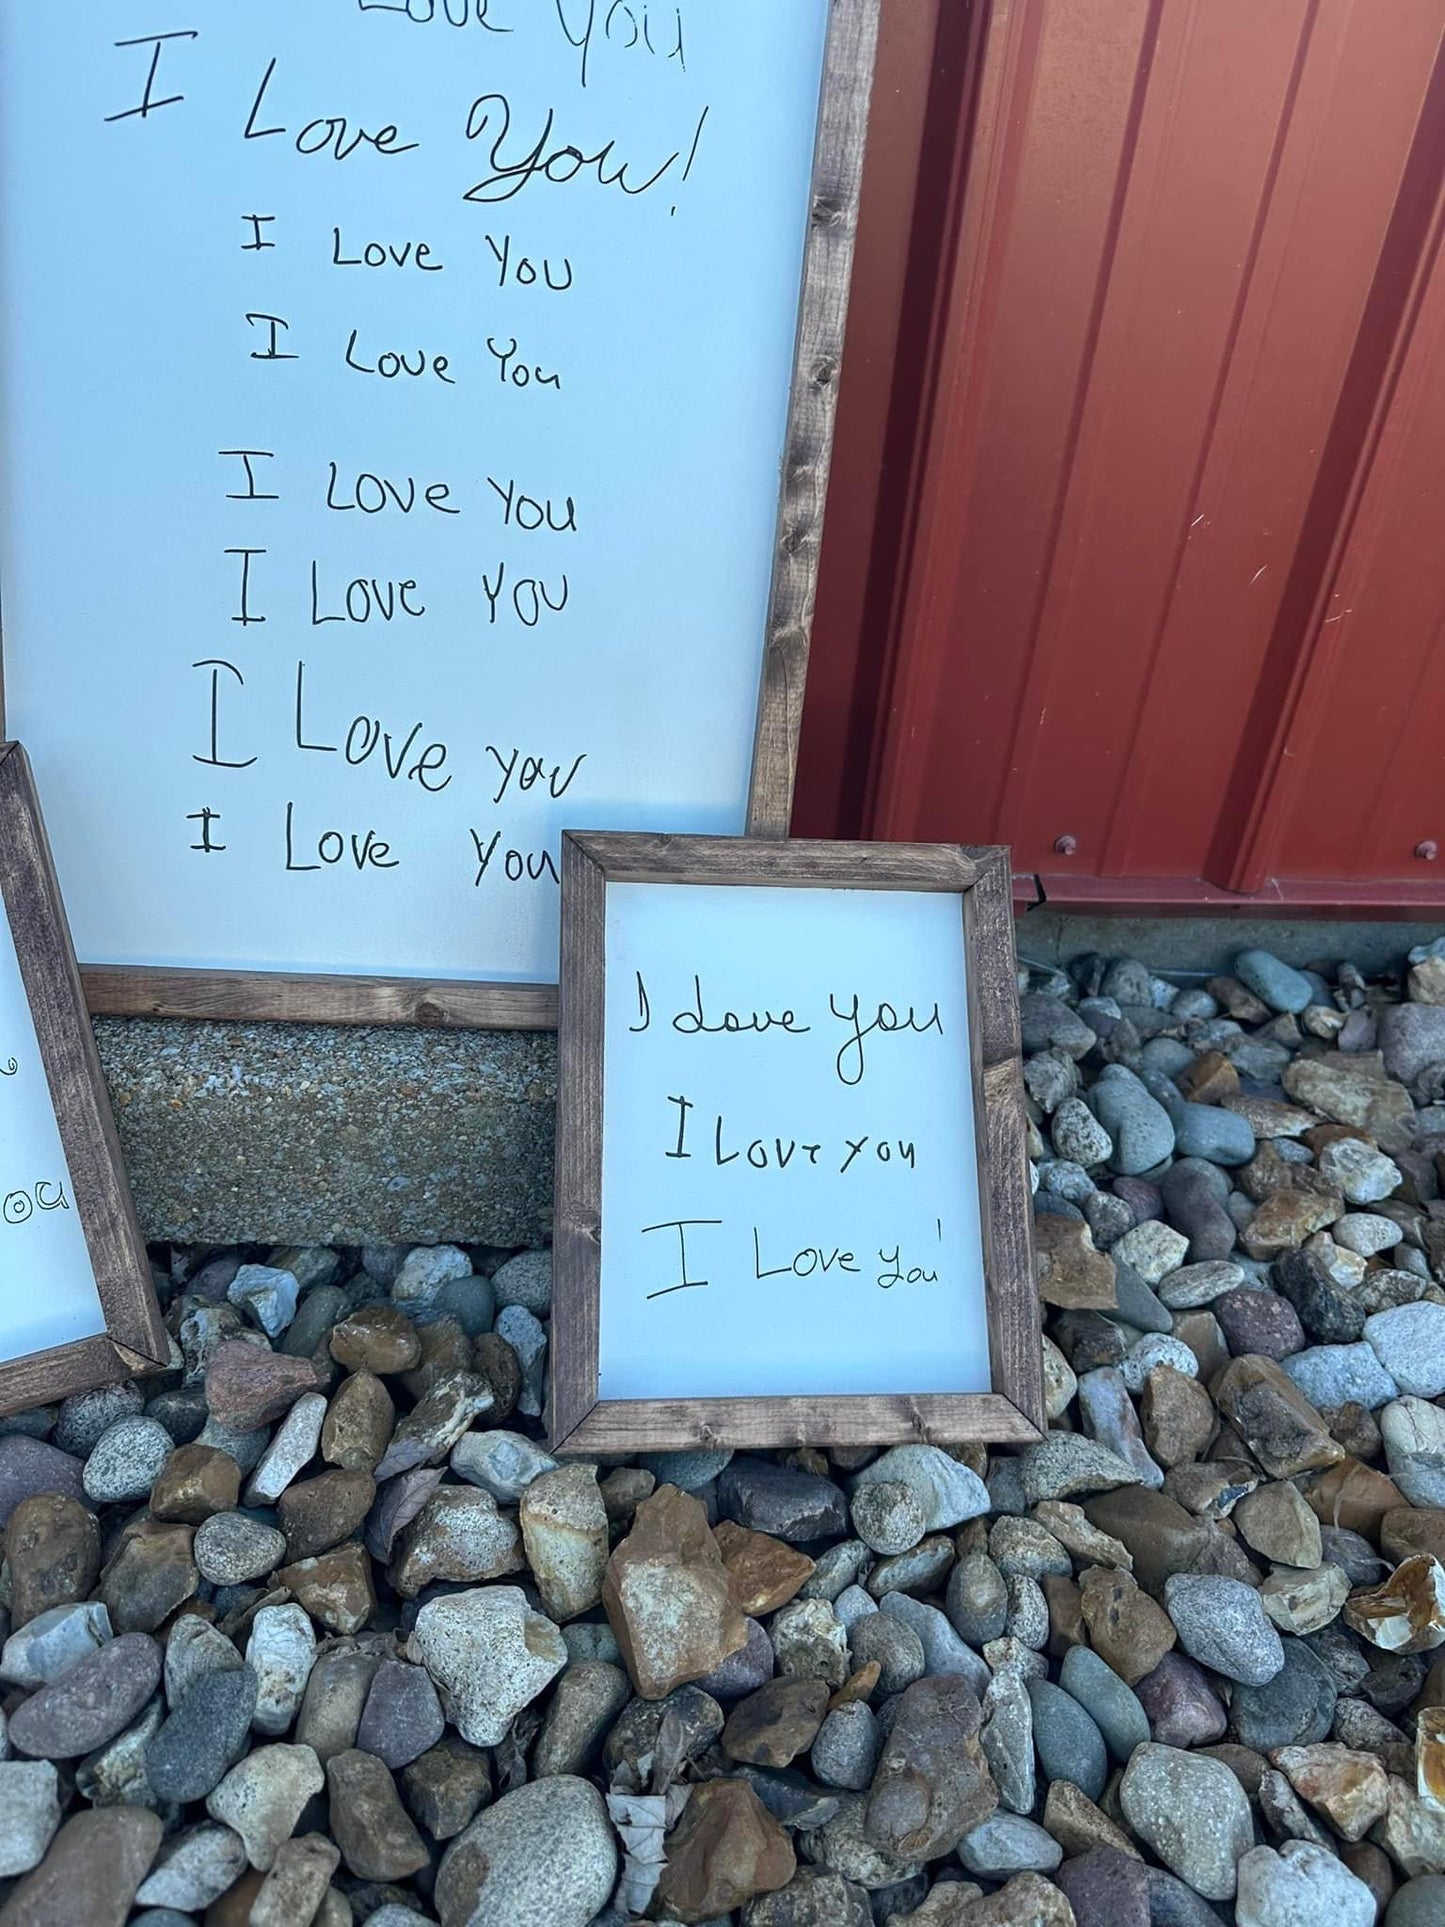 Love You
I Love You!
I Love You
I Love You
I Love You
I Love You
I Love You
I Love You
I Love you
I Love you
I Love you!
ou